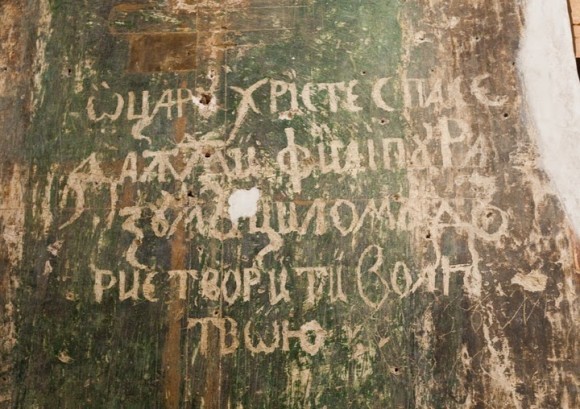 Ѡ ЦАРЮ ХРЇСТЕ СПАСЕ
ДАЖДИ ФИЛІПꙊ РА
ЗꙊМЪ ЦИЛОМꙊДЪ
РИЕ ТВОРИТИ ВОЛЮ
ТВѠЮ